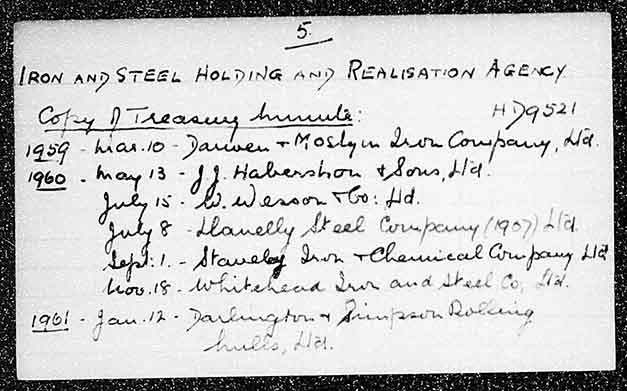 5.
IRON AND STEEL HOLDING AND REALISATION AGENCY
Copy of Treasury Minute: HD9521
1959 - Mar. 10 - Darwen + Mostyn Iron Company, Ltd.
1960 - May 13 - J.J. Habershon & Sons, Ltd.
July 15 - W. Wesson & Co: Ltd.
July 8 - Llanelly Steel Company (1907) Ltd.
Sept: 1. - Staveley Iron + Chemical Company Ltd
Nov. 18 - Whitehead Iron and Steel Co, Ltd.
1961 - Jan. 12 - Darlington & Simpson Rolling
Mills, Ltd.